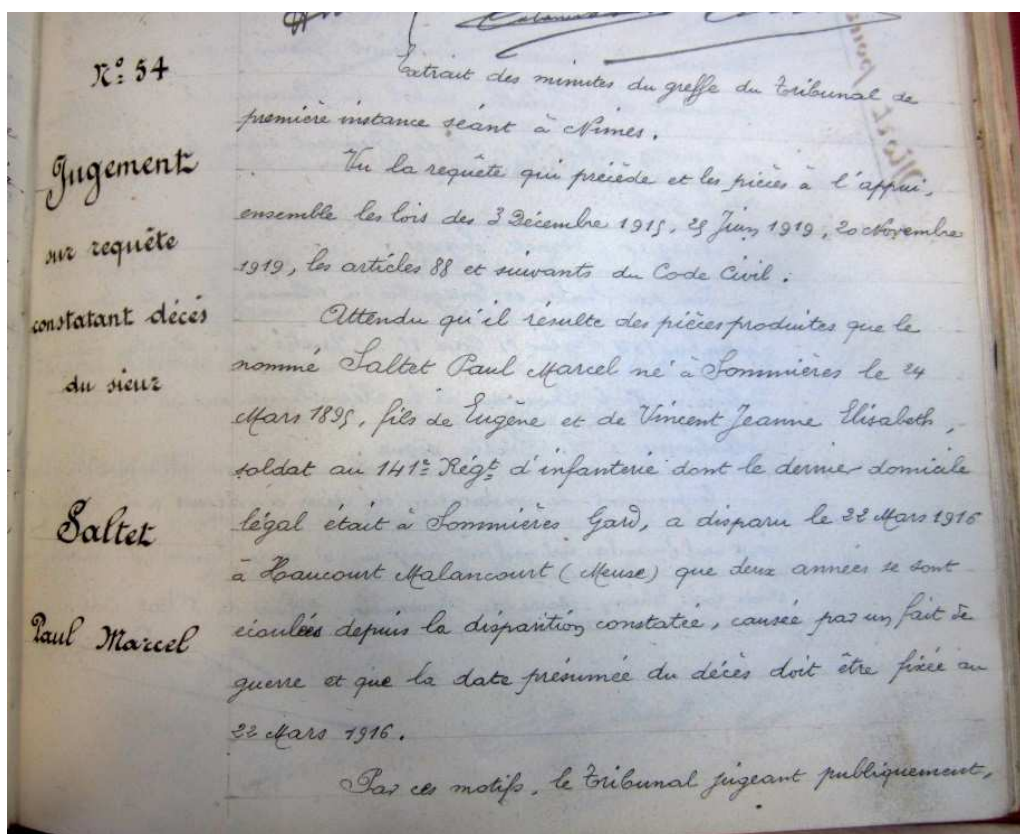 N° 54
Jugement
sur requête
constatant décés
du sieur
Saltet
Paul Marcel
Extrait des minutes du greffe du Tribunal de
première instance séant à Nimes.
Vu la requête qui précède et les pièces à l'appui,
ensemble les lois des 3 Décembre 1915, 25 Juin 1919, 20 Novembre
1919, les articles 88 et suivants du Code Civil ;
Attendu qu'il résulte des pièces produites que le
nommé Saltet Paul Marcel né à Sommières le 24
Mars 1895, fils de Eugène et de Vincent Jeanne Elisabeth,
soldat au 141e Régt d'infanterie dont le dernier domicile
légal était à Sommières Gard, a disparu le 22 Mars 1916
à Haucourt Malancourt (Meuse) que deux années se sont
écoulées depuis la disparition constatée, causée par un fait de
guerre et que la date présumée du décès doit être fixée au
22 Mars 1916.
Par ces motifs, le Tribunal jugeant publiquement,